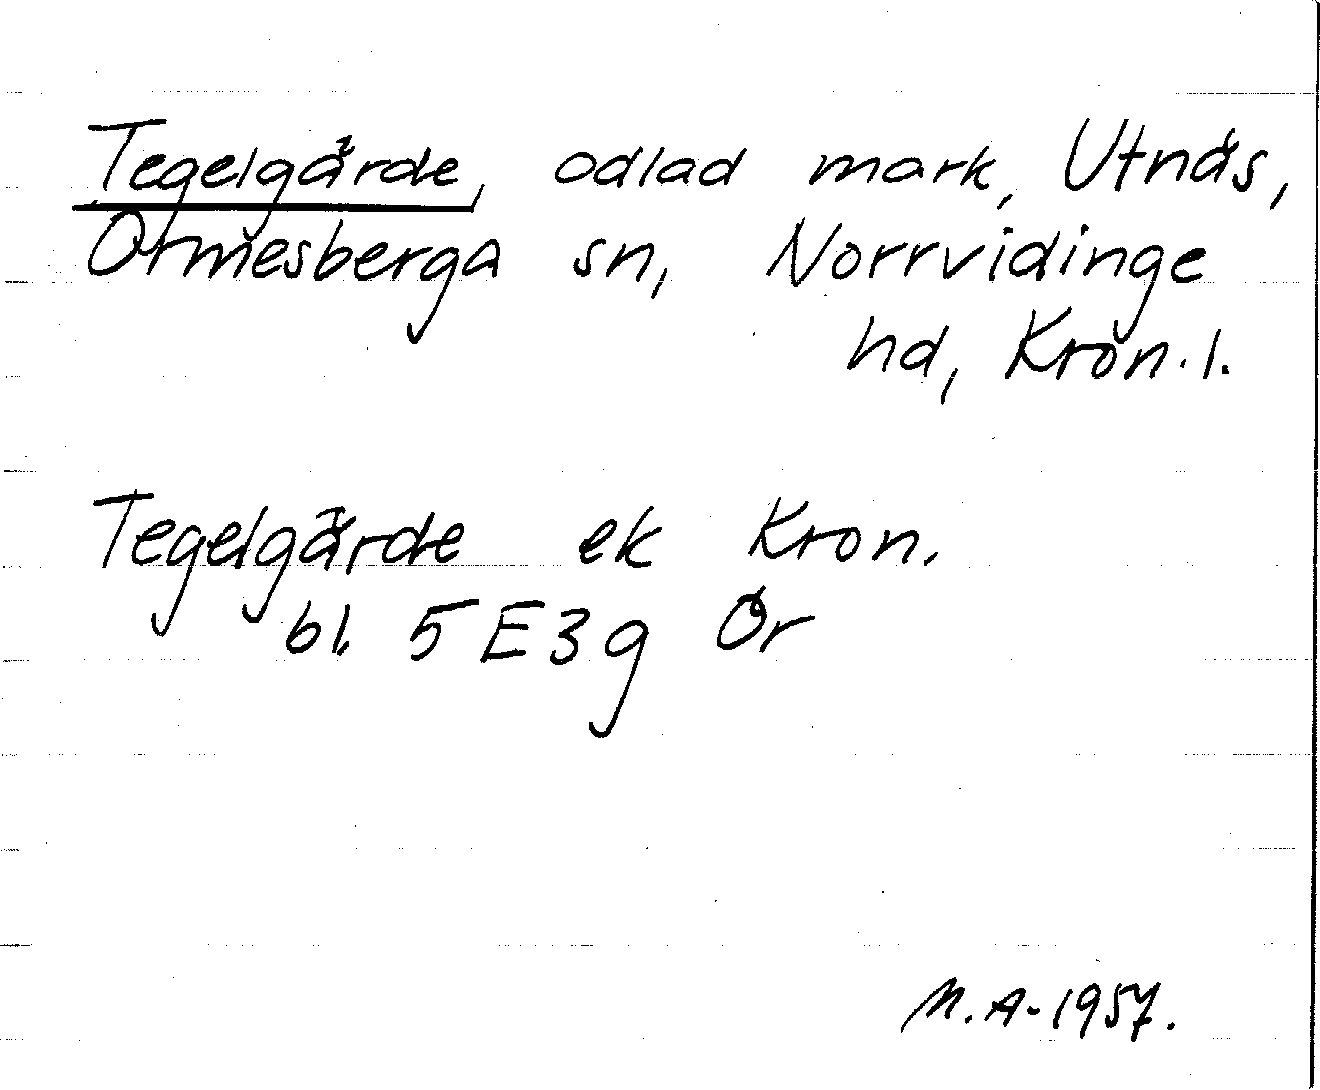 Tegelgärde, odlad mark, Utnäs,
Ormesberga sn, Norrvidinge
hd, Kron. l.
Tegelgärde ek Kron.
bl. 5E3g Ör
M.A-1957.